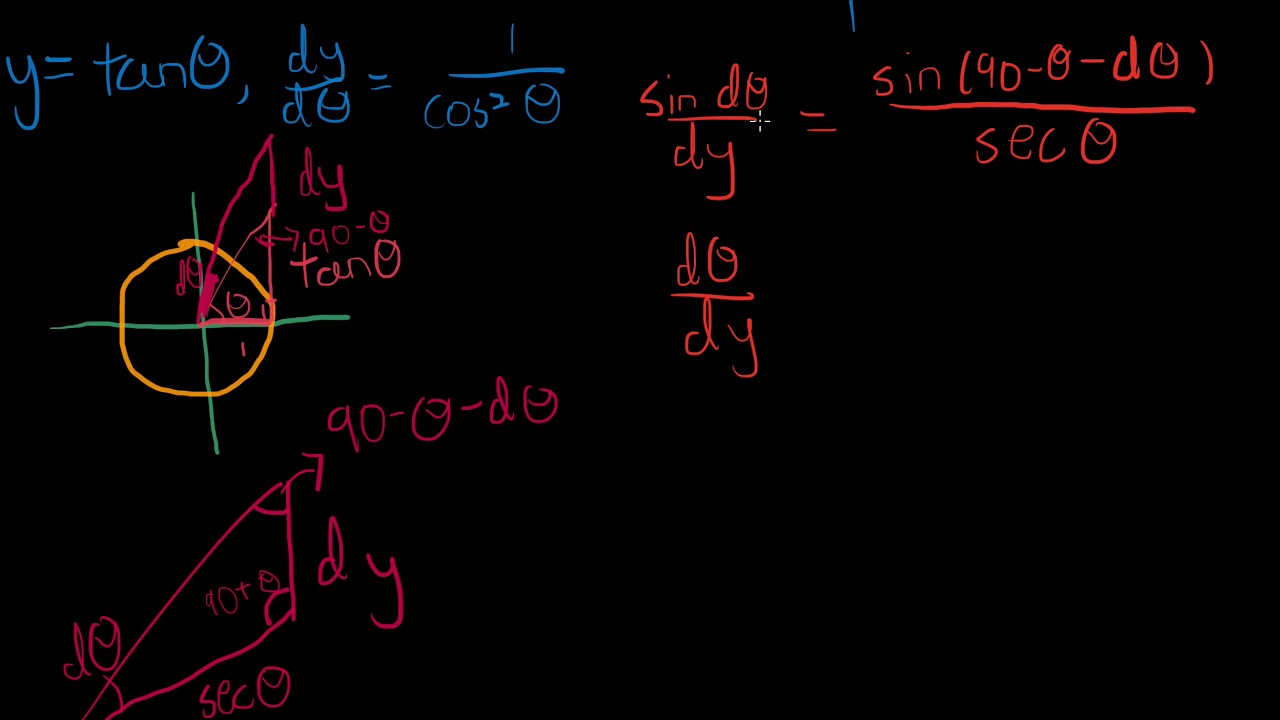 y = tanθ, dy/dθ = 1/cos² θ
sin dθ/dy = sin(90-θ-dθ)/secθ
dθ/dy
dy
90-θ
tanθ
dθ
θ
1
90-θ-dθ
dy
90+θ
dθ
secθ